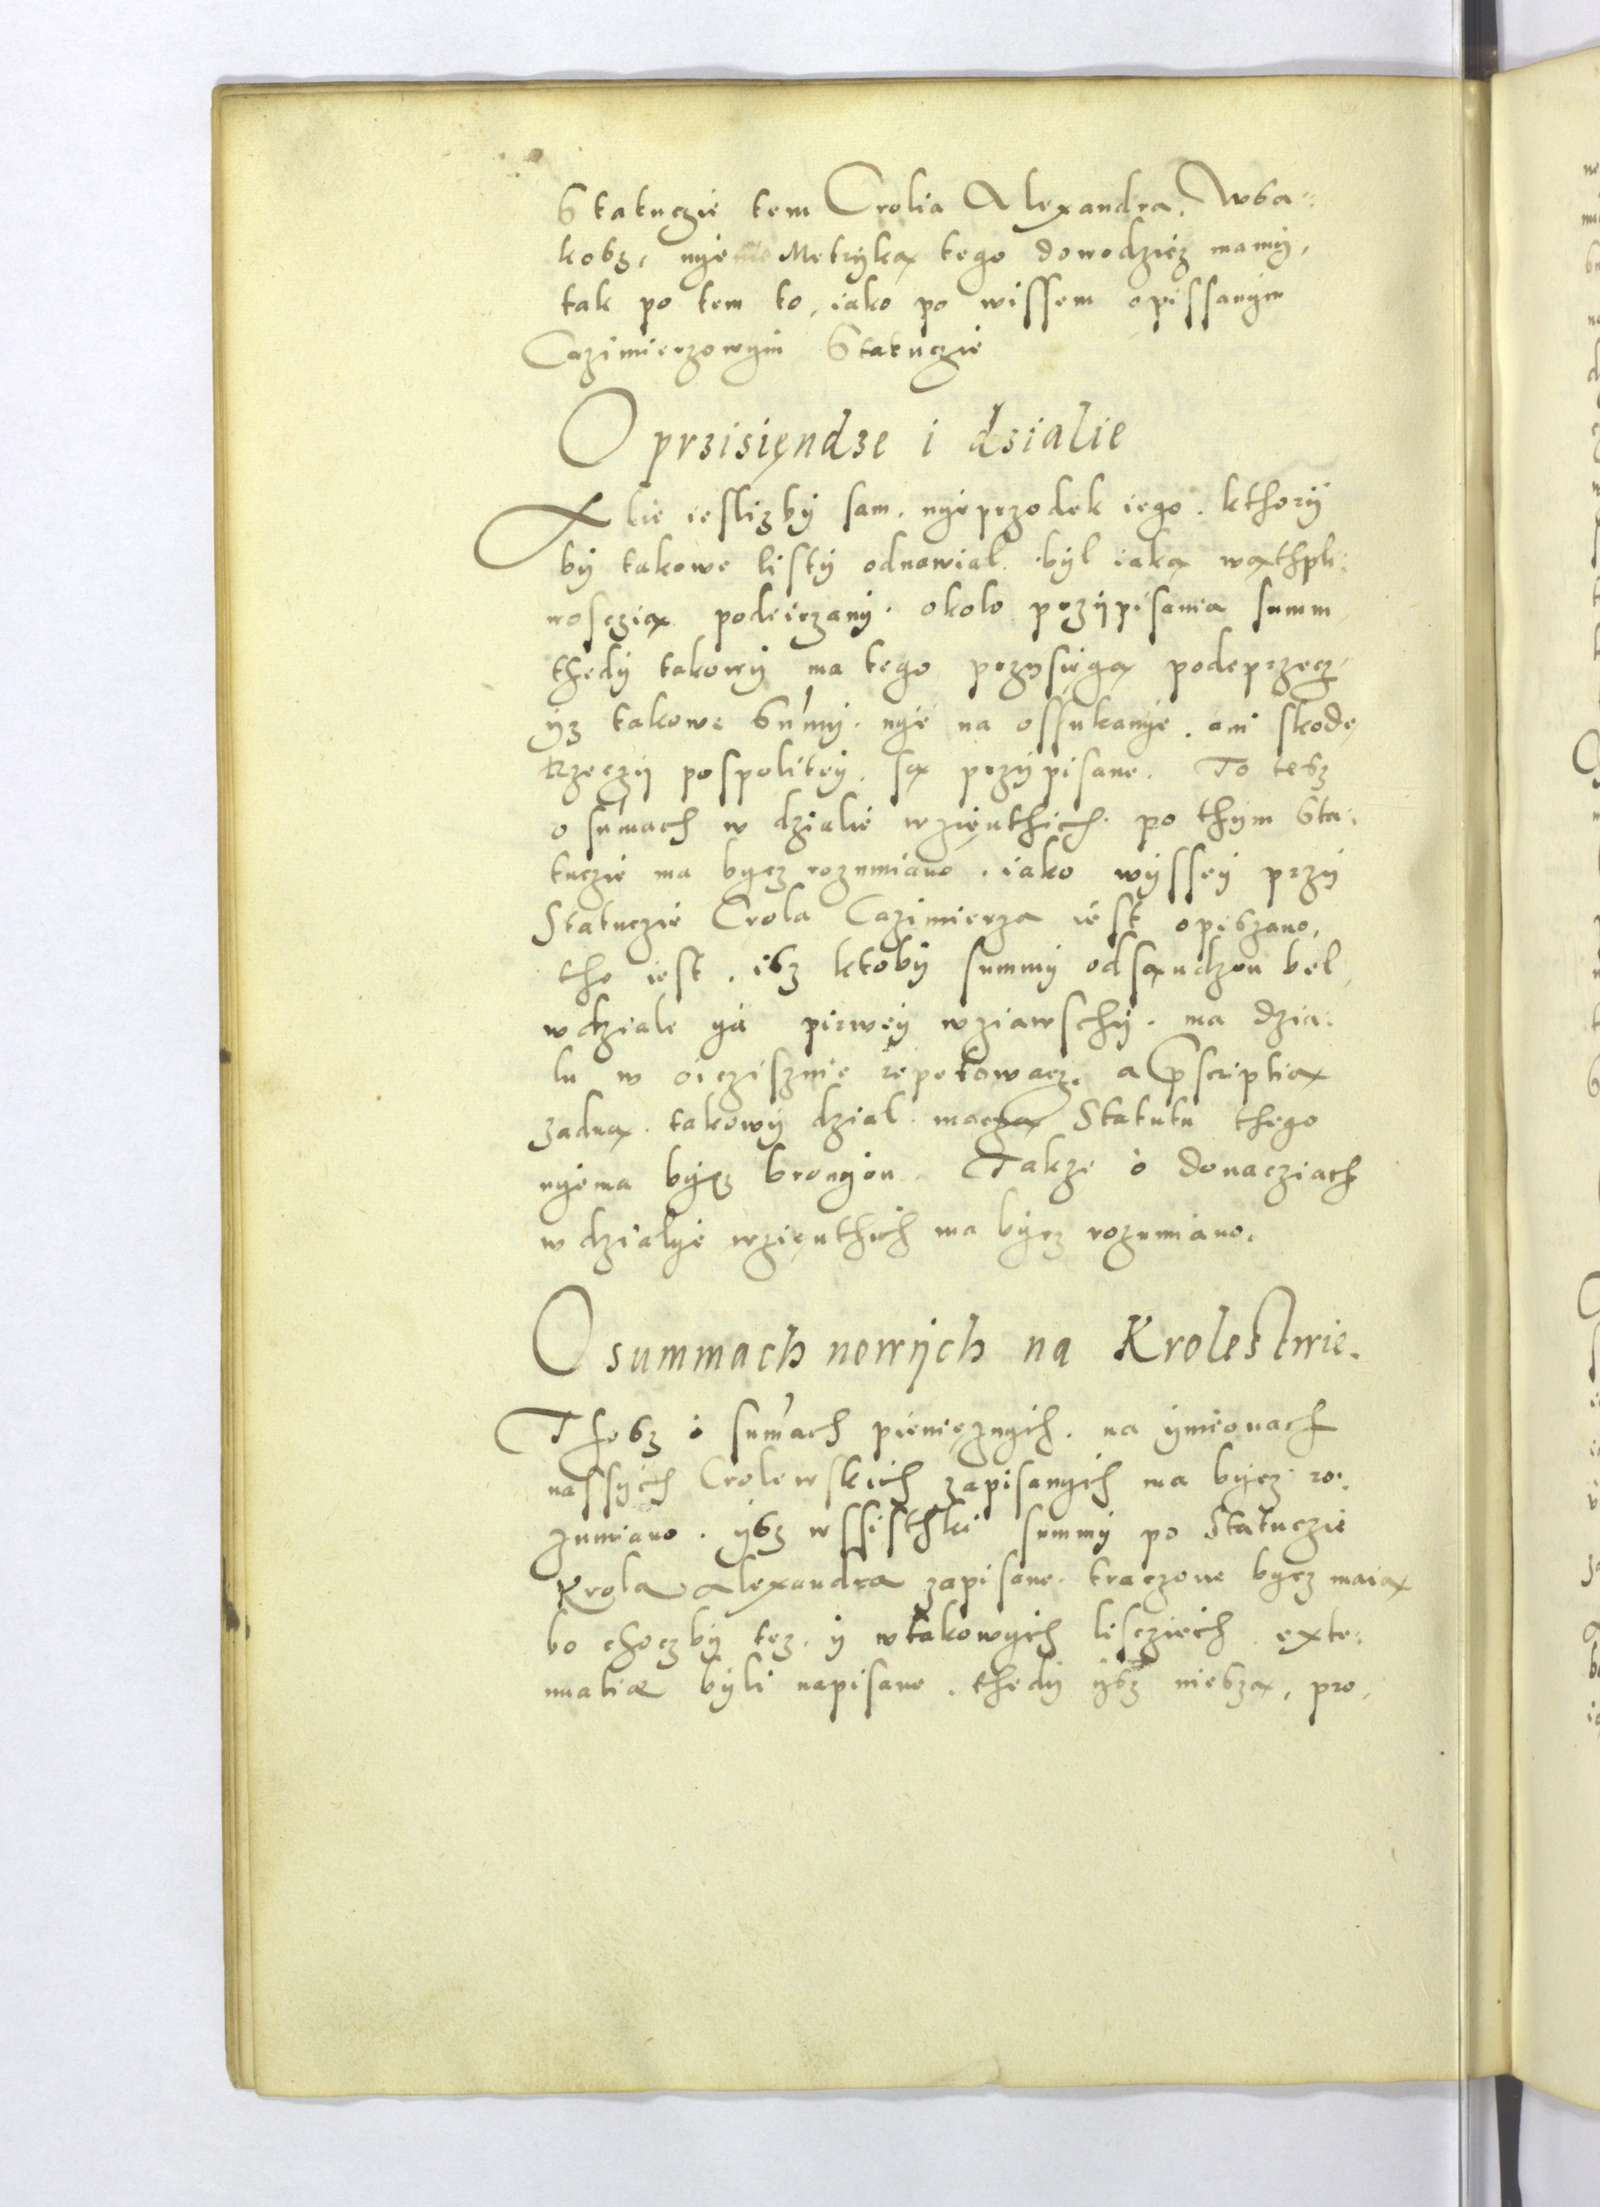 Statuczie tem Crolia Alexandra. Wsa-
kosz, nye Metryką tego dowodzicz mamy,
tak po tem to, iako po wissem opissanym
Cazimierzowym Statuczie
O przisięndze i dzialie
Alie ieslizby sam. nye przodek iego. kthory
by takowe listy odnawial. byl iaką wąthpli-
wosczią podeirzany. okolo przypisania summ
thedy takowy ma tego przysięgą podeprzecz,
yz takowe Summy. nye na ossukanye. ani skodę
Rzeczy pospolitey. są przypisane. To tesz
o sumach w dzialie wzięnthich. po thym Sta-
tuczie ma bycz rozumiano. iako wyssey przy
Statuczie Crola Cazimierza iest opiszano,
tho iest. isz ktoby summy odsąndzon bel,
w dziale ya pirwey wziawschy. ma dzia-
lu w oiczisznie repetowacz. a pscriptią
zadną. takowy dzial. Statutu thego
nyema bycz bronyon. Takze o donacziach
w dzialye wzięnthich ma bycz rozumiano.
O summach nowych na Krolestwie.
Thesz o sumach pieniężnych. na ymionach
nassych Crolewskich zapisanych ma bycz ro-
zumiano. ysz wssisthki summy po Statuczie
Krola Alexandra zapisane. traczone bycz maią
bo choczby tez. y w takowych liscziech exte-
nuatiae byli napisane. thedy ysz nieszą, pro-